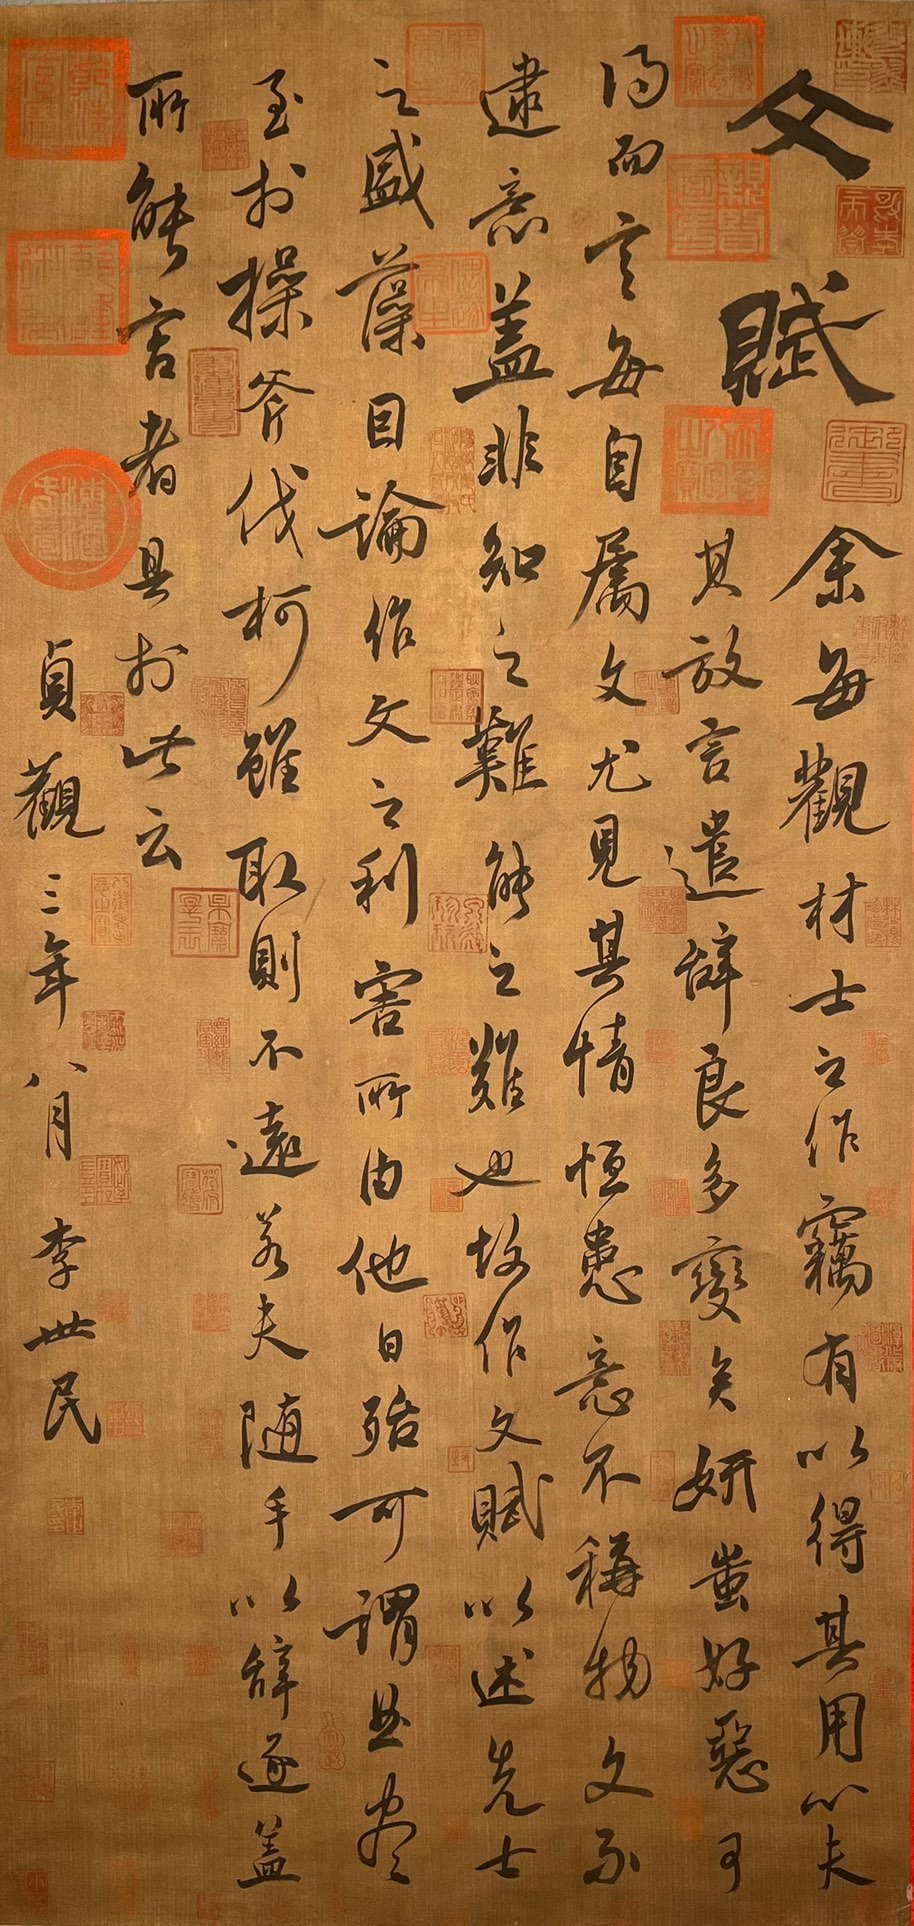 文賦
余每觀材士之作竊有以得其用心夫
其放言遣辭良多變矣妍蚩好惡可
得而言每自屬文尤見其情恒患意不稱物文不
逮意盖非知之難能之難也故作文賦以述先士
之盛藻因論作文之利害所由他日殆可謂曲盡
至於操斧伐柯雖取則不遠若夫隨手以辭逐盖
所能言者具於此云
貞觀三年八月 李世民